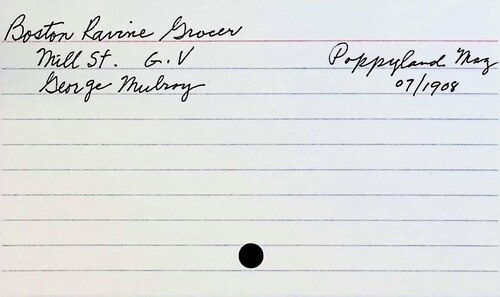 Boston Ravine Grocer
Mill St. G.V
George Mulroy
Poppyland Mag
07/1908